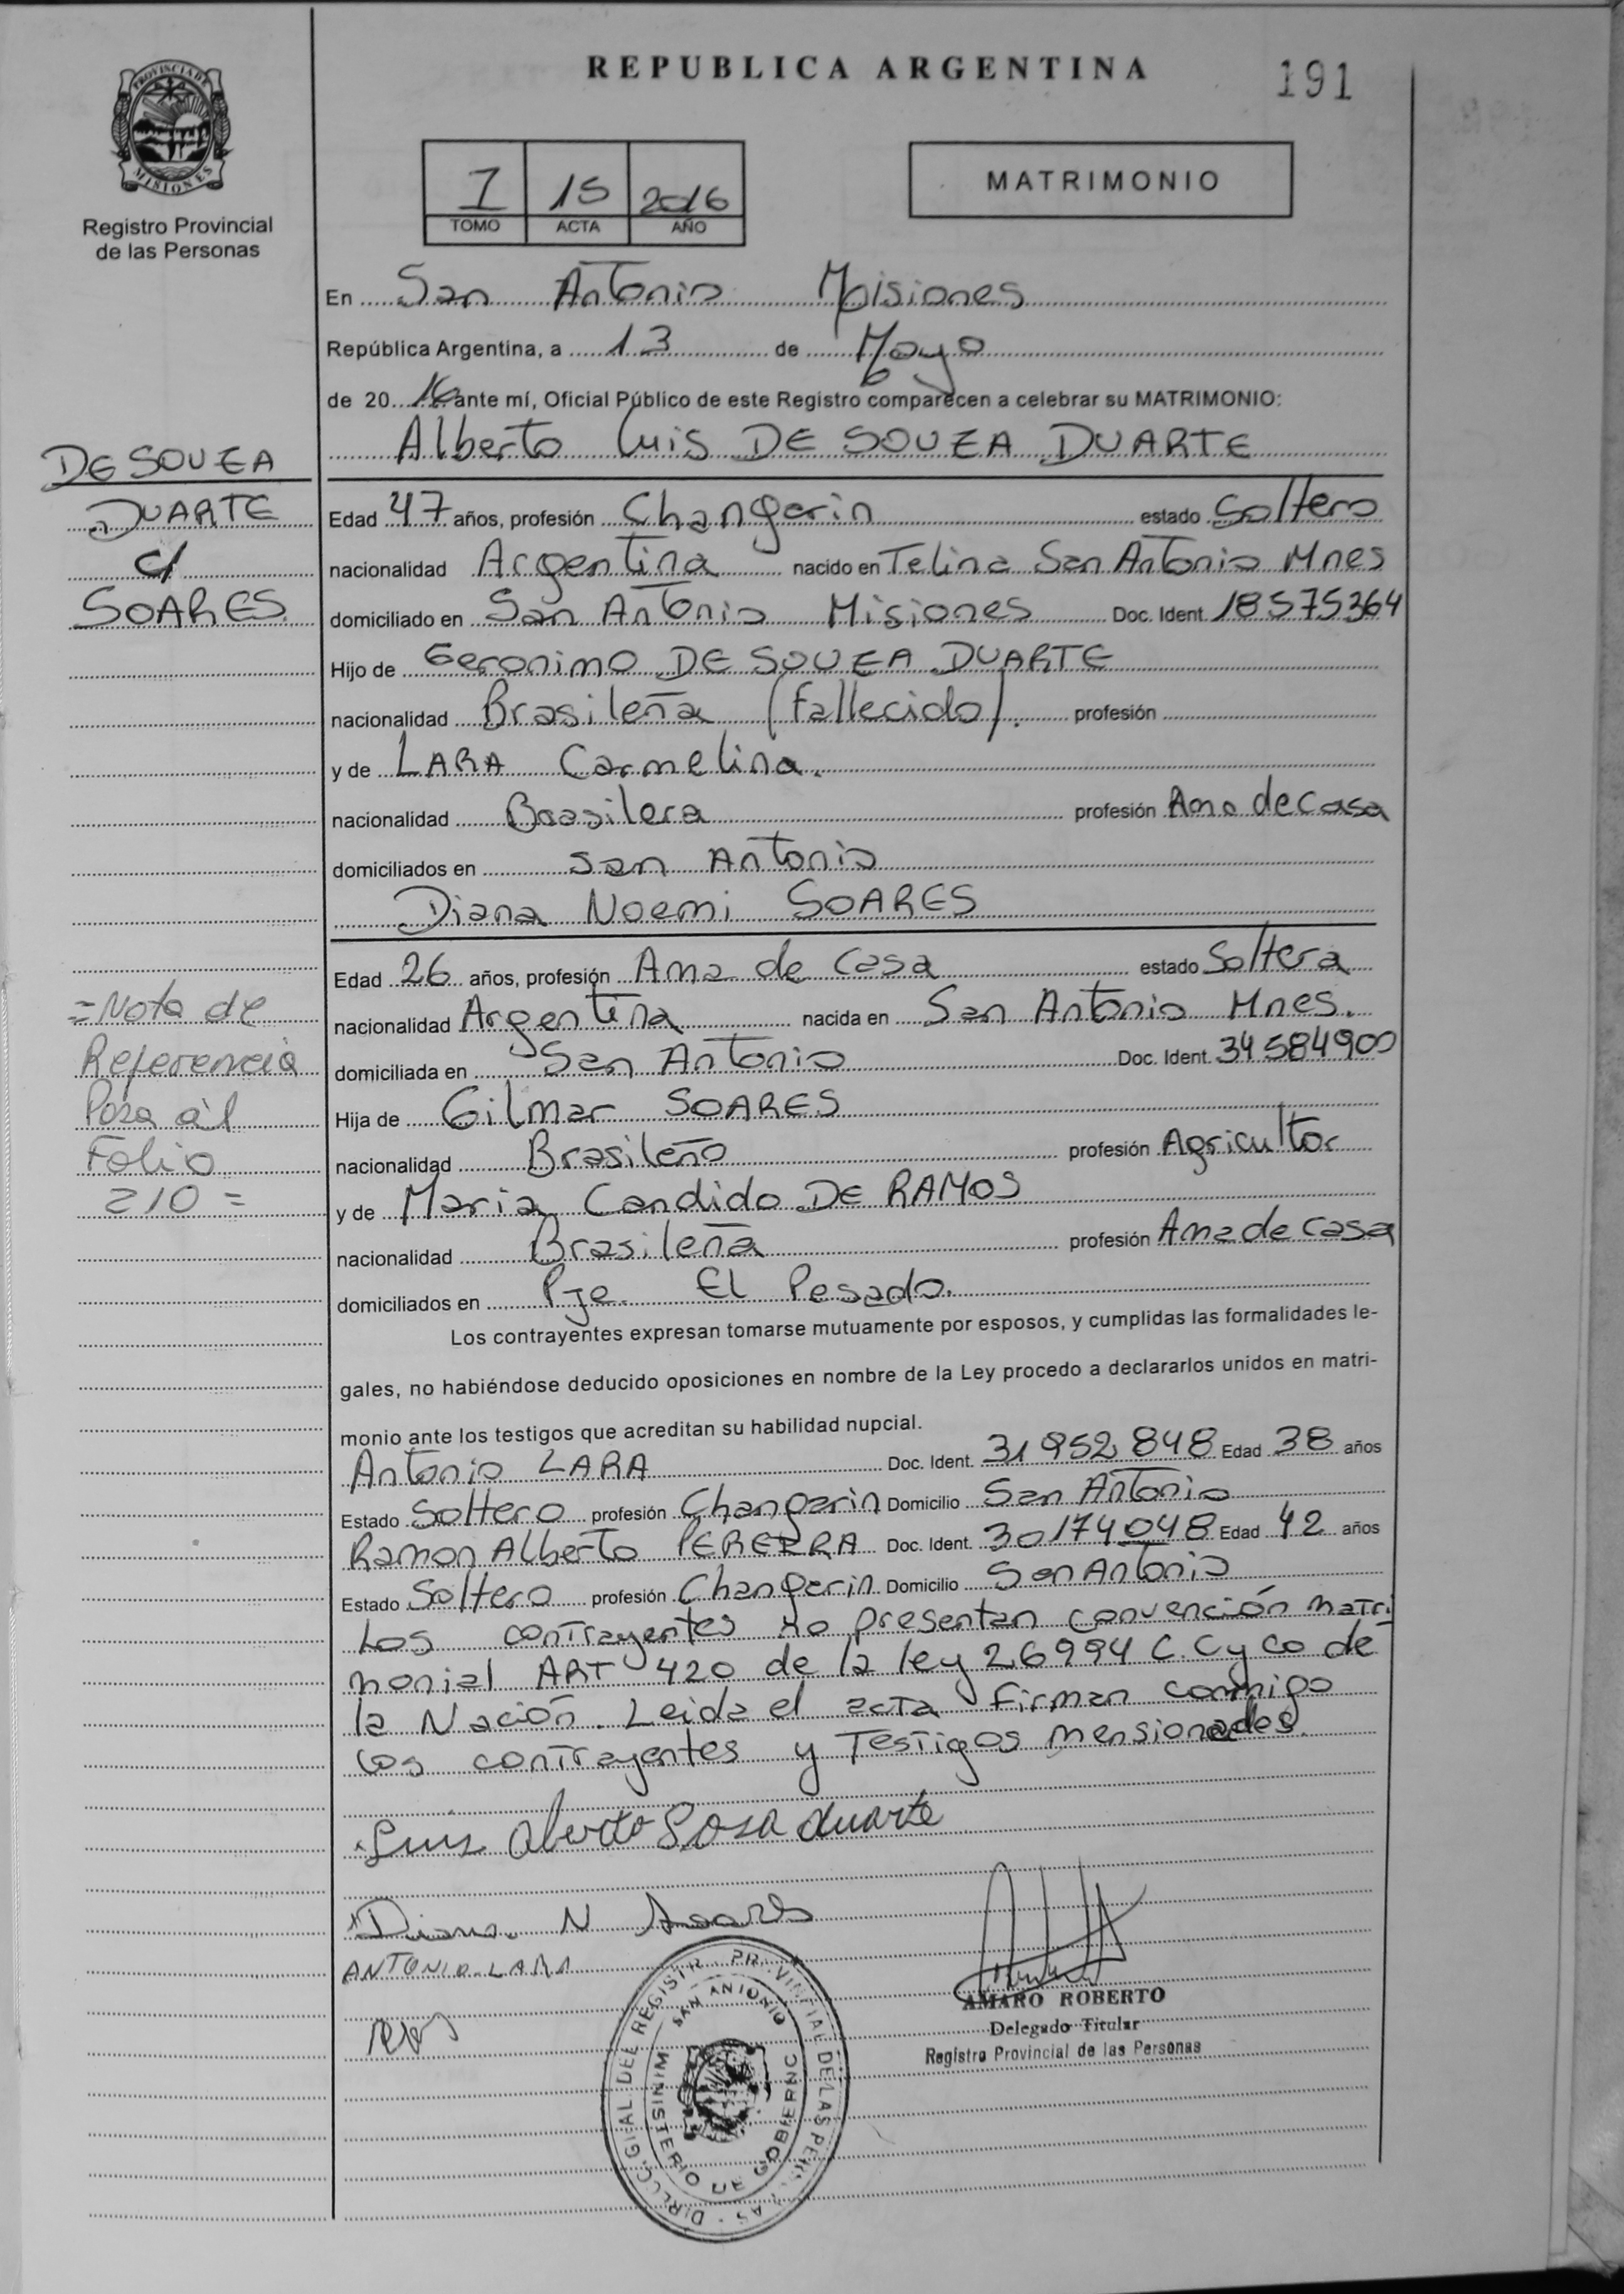 REPUBLICA ARGENTINA
191
PROVINCIA DE MISIONES
Registro Provincial
de las Personas
I 15 2016
TOMO ACTA AÑO
MATRIMONIO
En San Antonio Misiones
República Argentina, a 13 de Mayo
de 20 16 ante mí, Oficial Público de este Registro comparecen a celebrar su MATRIMONIO:
Alberto Luis DE SOUZA DUARTE
DE SOUZA
DUARTE
c/
SOARES
Edad 47 años, profesión Changarin estado Soltero
nacionalidad Argentina nacido en Telina San Antonio Mnes
domiciliado en San Antonio Misiones Doc. Ident. 18575364
Hijo de Geronimo DE SOUZA DUARTE
nacionalidad Brasileña (Fallecido). profesión
y de LARA Carmelina.
nacionalidad Brasilera profesión Ama de Casa
domiciliados en San Antonio
Diana Noemi SOARES
Edad 26 años, profesión Ama de Casa estado Soltera
nacionalidad Argentina nacida en San Antonio Mnes.
domiciliada en San Antonio Doc. Ident. 34584900
Hija de Gilmar SOARES
nacionalidad Brasileño profesión Agricultor
y de Maria Candido DE RAMOS
nacionalidad Brasileña profesión Ama de Casa
domiciliados en Pje. El Pesado.
=Nota de
Referencia
Pasa al
Folio
210=
Los contrayentes expresan tomarse mutuamente por esposos, y cumplidas las formalidades le-
gales, no habiéndose deducido oposiciones en nombre de la Ley procedo a declararlos unidos en matri-
monio ante los testigos que acreditan su habilidad nupcial.
Antonio LARA Doc. Ident. 31952848 Edad 38 años
Estado Soltero profesión Changarin Domicilio San Antonio
Ramon Alberto PEREIRA Doc. Ident. 30174048 Edad 42 años
Estado Soltero profesión Changarin Domicilio San Antonio
Los contrayentes no presentan convención matri
monial ART 420 de la ley 26994 C.C y Co de
la Nación. Leida el acta firman conmigo
los contrayentes y Testigos mensionados.
Luis alberto Sosa duarte
Diana N Soares
ANTONIO LARA
AMARO ROBERTO
Delegado Titular
Registro Provincial de las Personas
DIRECC. GRAL. DEL REGISTR. PROVINCIAL DE LAS PERSONAS
SAN ANTONIO
MINISTERIO DE GOBIERNO